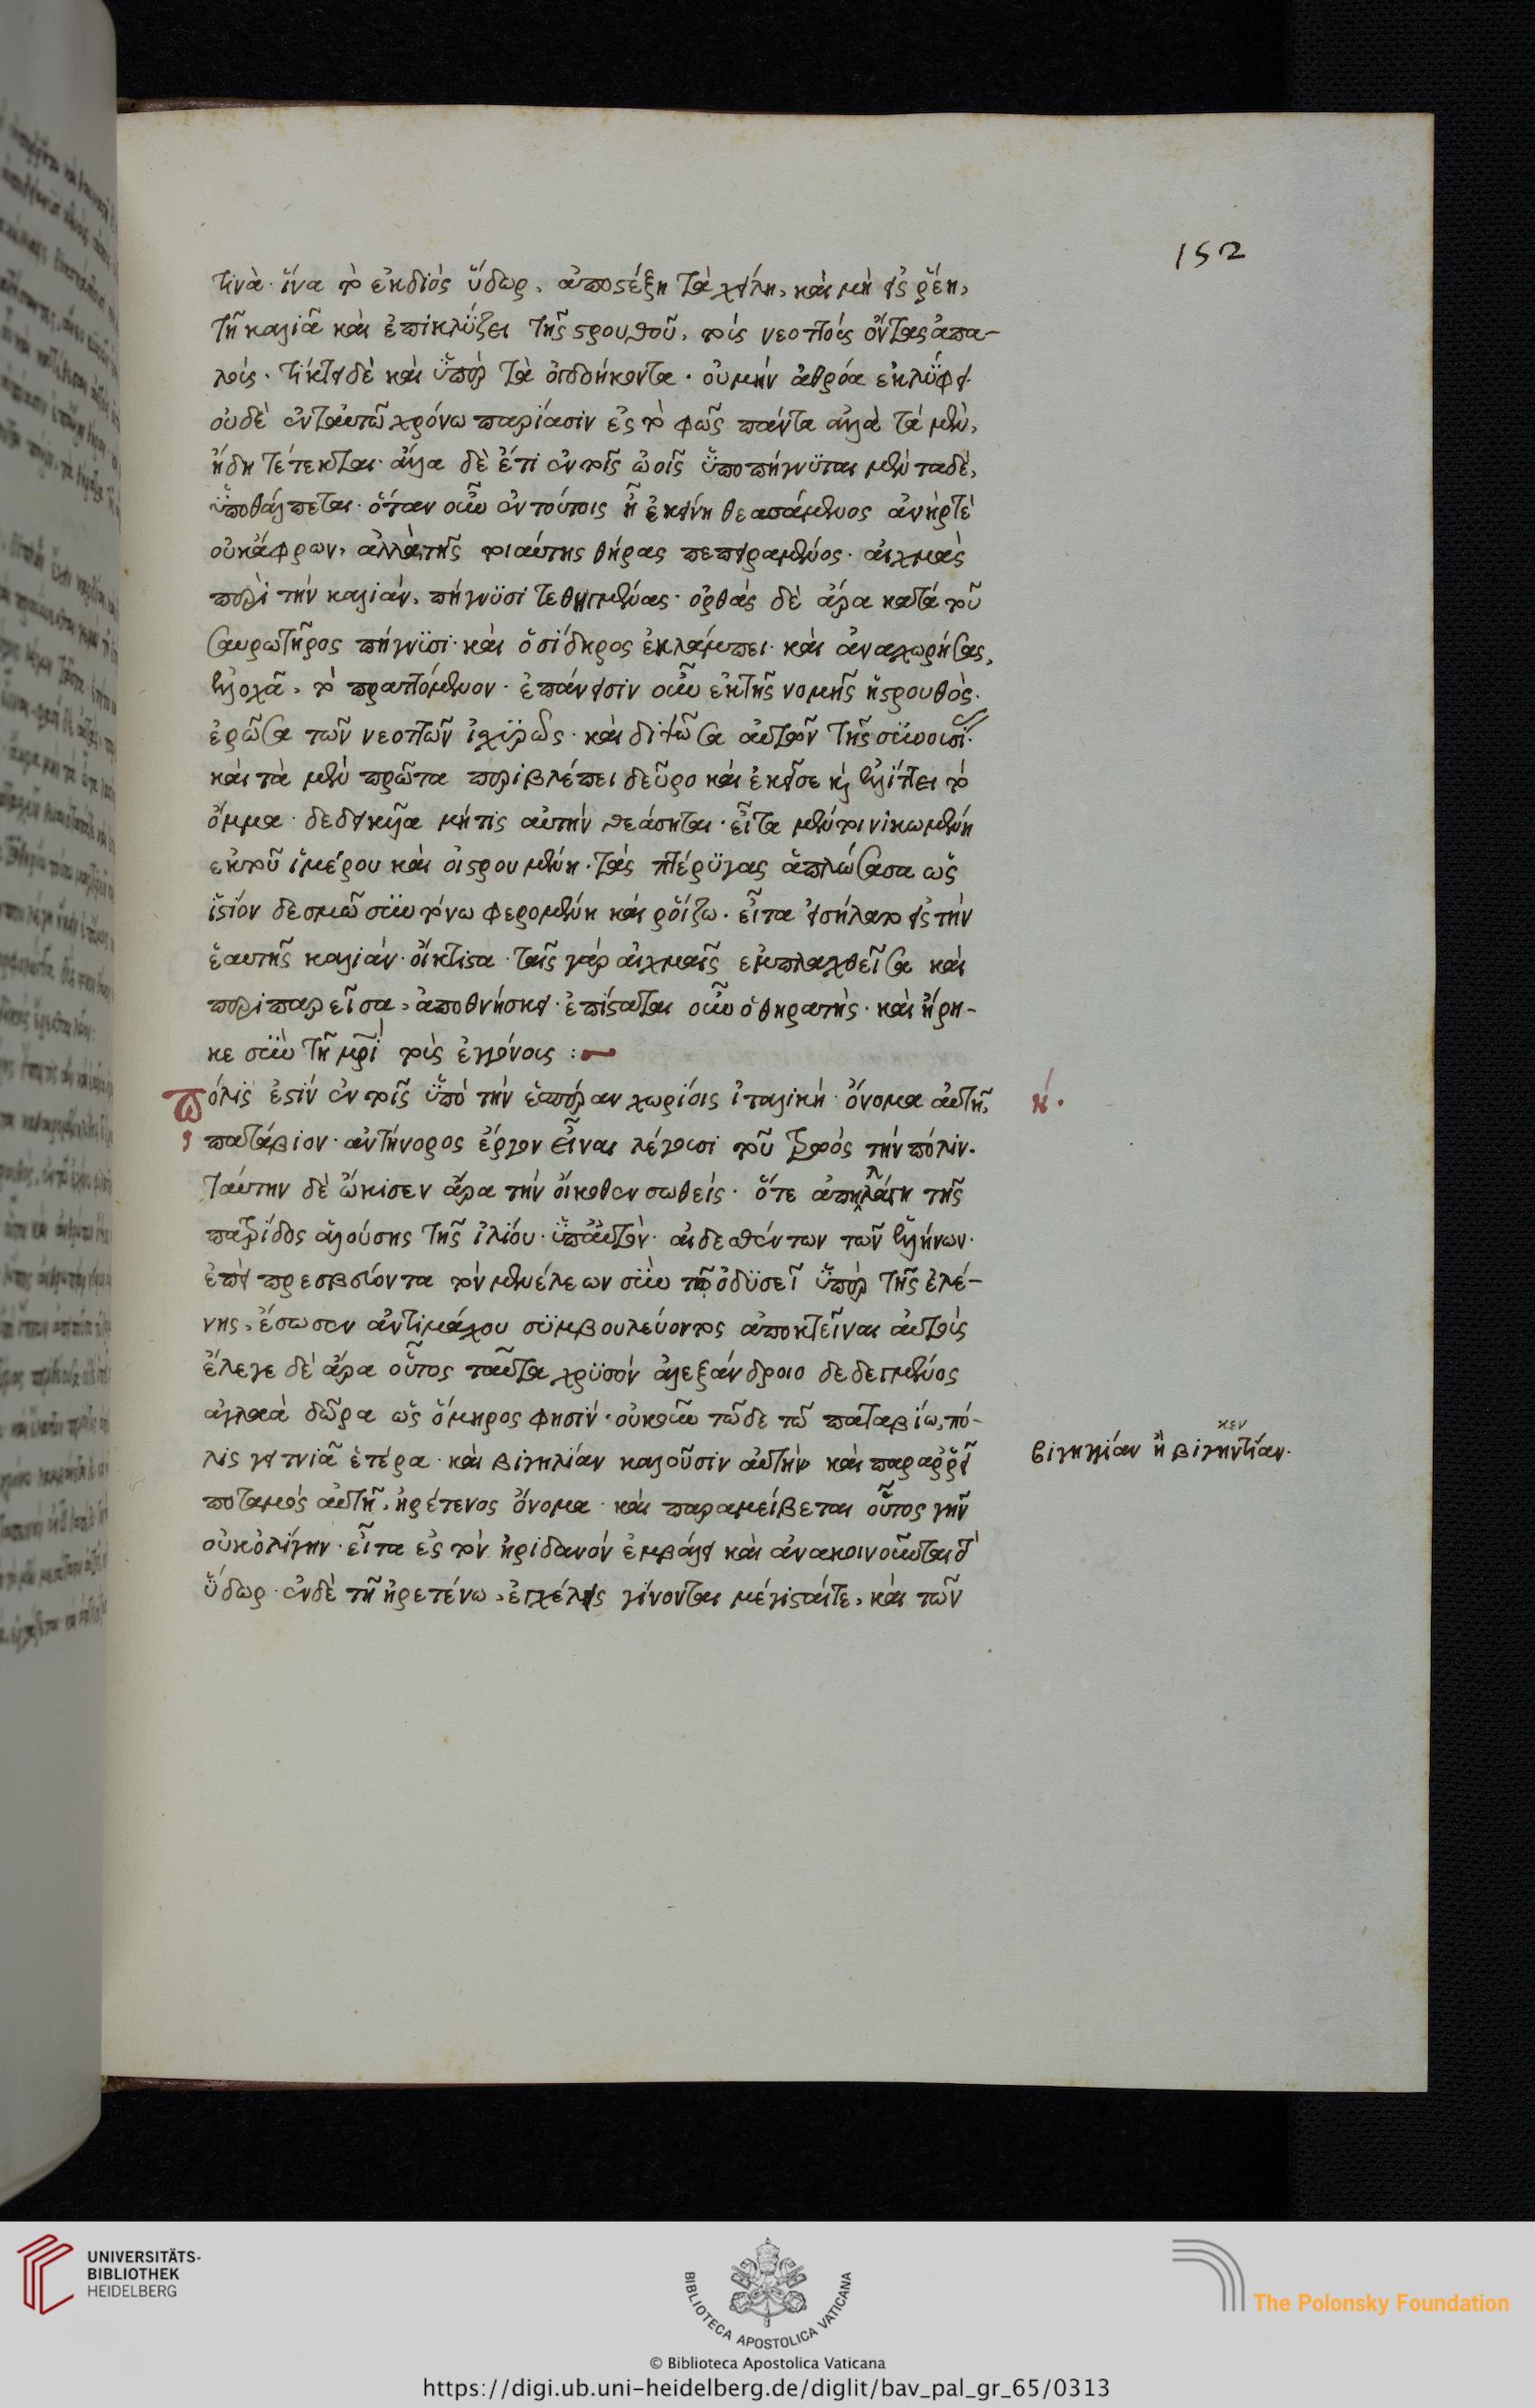 152
τινὰ· ἵνα τὸ ἐκδιὸς ὕδωρ, ἀποστέξῃ τὰ χείλη, καὶ μὴ εἰς ῥέῃ,
τῆ καλιᾶ καὶ ἐπικλύζει τῆς στρουθοῦ, τοὶς νεοττοὶς ὄντας ἀπα-
λοὶς· τίκτει δὲ καὶ ὑπὲρ τὰ ὀγδοήκοντα· οὐ μὴν ἀθρόα ἐκλύφει
οὐδὲ ἐν ταὐτῶ χρόνω παρίασιν ἐς τὸ φῶς πάντα ἀλλὰ τὰ μὲν,
ἤδη τέτεκται· ἄλλα δὲ ἔτι ἐν τοῖς ὠοῖς ὑποπήγνυται μὲν τὰ δὲ,
ὑποθάλπεται· ὅταν οὖν ἐν τούτοις ἦ ἐκείνη θεασάμενος ἀνήρ τὲ
οὐκ ἄφρων, ἀλλὰ τῆς τοιαύτης θήρας πεπειραμένος· αἰχμὰς
περὶ τὴν καλιὰν, πήγνυσι τεθηγμένας· ὀρθὰς δὲ ἄρα κατὰ τοῦ
σαυρωτῆρος πήγνυσι· καὶ ὁ σίδηρος ἐκλάμπει· καὶ ἀναχωρήσας,
ἐλλοχᾶ, τὸ πραττόμενον· ἐπάνεισιν οὖν ἐκ τῆς νομῆς ἡ στρουθὸς·
ἐρῶσα τῶν νεοττῶν ἰσχυρῶς· καὶ διψῶσα αὐτῶν τῆς συνουσί·
καὶ τὰ μὲν πρῶτα περιβλέπει δεῦρο καὶ ἐκεῖσε κ ἐλλίττει τὸ
ὄμμα· δεδοικυῖα μήτις αὐτὴν θεάσηται· εἶτα μέντοι νικωμένη
ἐκ τοῦ ἱμέρου καὶ οἰστρουμένη· τὰς πτέρυγας ἁπλώσασα ὡς
ἱστίον δεσμῶ συντόνω φερομένη καὶ ῥοίζω· εἶτα εἰσήλατο εἰς τὴν
ἑαυτῆς καλιὰν· οἴκτιστα· ταῖς γὰρ αἰχμαῖς ἐμπλαχθεῖσα καὶ
περιπαρεῖσα, ἀποθνήσκει· ἐπίσταται οὖν ὁ θηρατής· καὶ ἤρη-
κε σὺν τῆ μρὶ τοὶς ἐγγόνοις :
Πόλις ἐστίν ἐν τοῖς ὑπὸ τὴν ἑσπέραν χωρίοις ἰταλική· ὄνομα αὐτῆ,
κ΄·
παταβιον· ἀντήνορος ἔργον εἶναι λέγουσι τοῦ τρωὸς τὴν πόλιν·
ταύτην δὲ ὤκισεν ἄρα τὴν οἴκοθεν σωθεὶς· ὅτε ἀπηλλάγη τῆς
πατρίδος ἁλούσης τῆς ἰλίου· ὑπ αὐτὸν· αἰδεσθέντων τῶν ἑλλήνων·
ἐπεὶ πρεσβεύοντα τὸν μενέλεων σὺν τῶ ὀδυσεῖ ὑπὲρ τῆς ἑλέ-
νης, ἔσωσεν ἀντιμάχου συμβουλεύοντος ἀποκτεῖναι αὐτοὶς
ἔλεγε δὲ ἄρα οὗτος ταῦτα χρυσὸν ἀλεξάνδροιο δεδεγμένος
ἀγλαὰ δῶρα ὡς ὅμηρος φησίν· οὐκοῦν τῶδε τῶ παταβίω, πό-
λις γειτνιᾶ ἑτέρα· καὶ βιγηλίαν καλοῦσιν αὐτὴν· καὶ παραρρεῖ
κεν
βιγηλίαν ἢ βιγηντίαν·
ποταμὸς αὐτῆ, ἠρέτενος ὄνομα· καὶ παραμείβεται οὗτος γῆν
οὐκ ὀλίγην· εἶτα ἐς τὸν ἠριδανὸν ἐμβάλλει καὶ ἀνακοινοῦταί οἱ
ὕδωρ· ἐν δὲ τῆ ἠρετένω, ἐγχέλεις γίνονται μέγισταίτε, καὶ τῶν
UNIVERSITÄTS-
BIBLIOTHEK
HEIDELBERG
BIBLIOTECA APOSTOLICA VATICANA
The Polonsky Foundation
© Biblioteca Apostolica Vaticana
https://digi.ub.uni-heidelberg.de/diglit/bav_pal_gr_65/0313